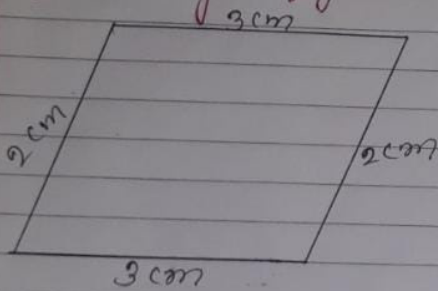 3 cm
2 cm
2 cm
3 cm